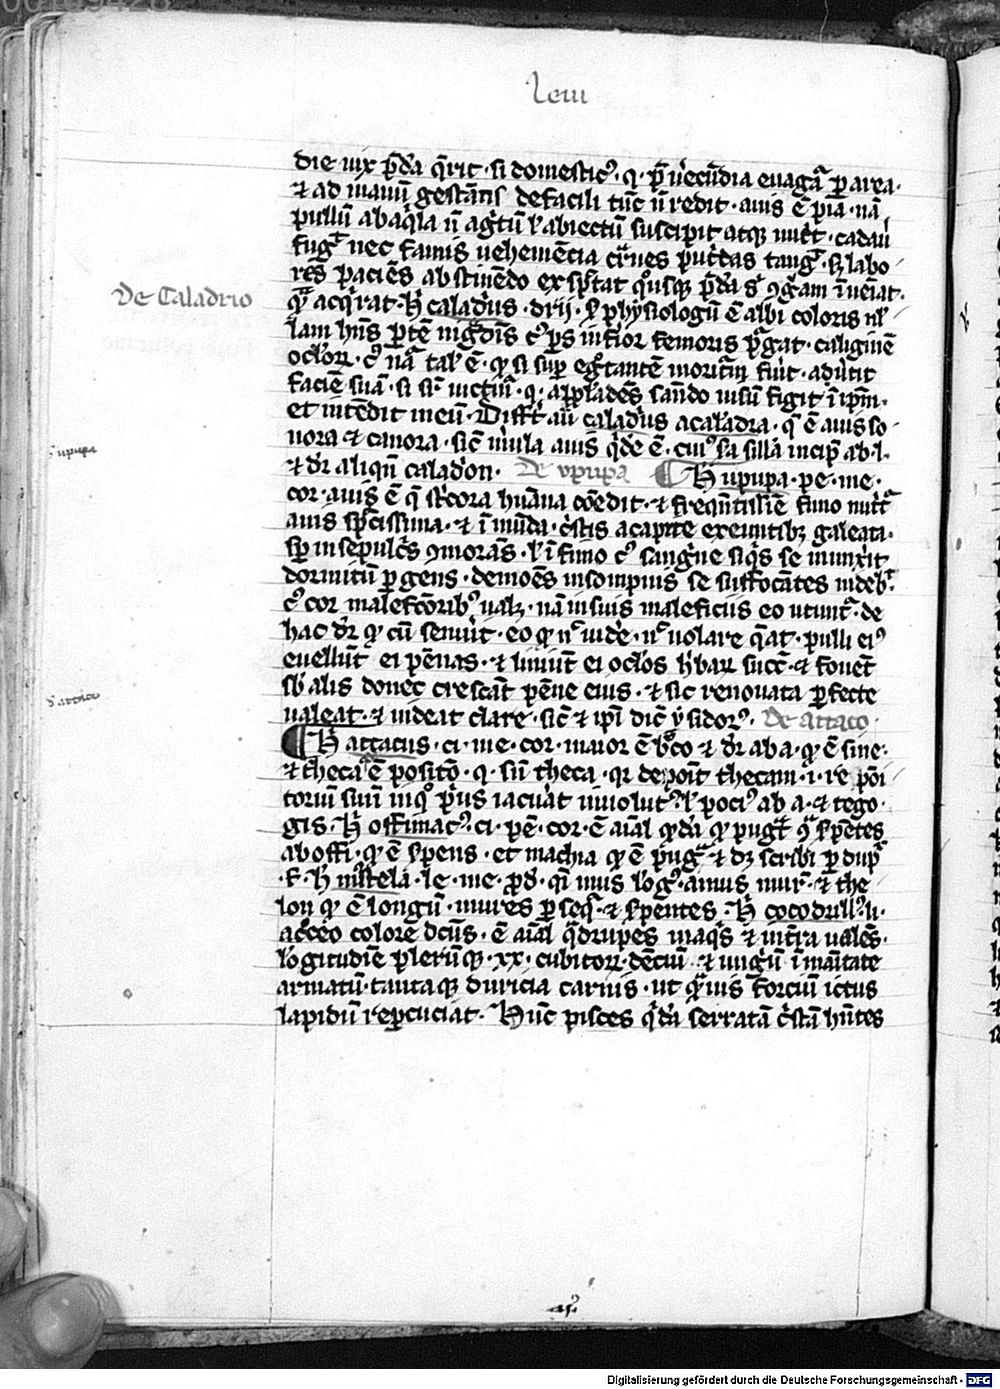 lciii
die uix p̄da q̄rit · si domesticꝰ · q · p̄ uecūdia euagat᷑ p̄ area ·
⁊ ad manū gestātis de facili tūc n̄ redit · auis ē pia · nā
pullū ab aq̇la n̄ agtū l᷑ abiectū suscipit atqꝫ nutͥt · cadau̾
fugͭ nec famis uehemēcia carnes putͥdas tangͭ · sꝫ labo
res paciēs abstinēdo exspectat qͦusqꝫ p̄da sͥ ꝯgruam īueiat ·
De Caladrio
qͣ acqͥrat · h̄ caladrius · drij · sͨ physiologū ē albi coloris nl̄
lam hn̄s ptē nigdīs cꝰ ps infior femoris purgat · caliginē
oclor̄ · cꝰ nā tal̄ ē · qͩ si sup egͦtantē moritͣm fuͥt · adutit
faciē suā · si sͭ uictuͥ · q · applādēs sanādo uisū figit ī ip̄m ·
et intēdit in eū · Differt aū caladrius a caladra · q̄ ē auis so
nora ⁊ canora · sic̄ mula auis qͥde ē · cuiꝰ sa silla incip̄ ab · l ·
upupa
⁊ dr̄ aliqn̄ caladrōn · De upupa h̄ upupa · pe · me ·
cor · auis ē q̄ stͨcora hūana cōedit · ⁊ freqn̄tissīe fimo nutͥtͣ
auis spͨcissima · ⁊ ī mūda · cͥstis a capite exeuntibꝫ galeata ·
sp in sepulcͥs ꝯmorās · l᷑ ī fimo cꝰ sanguīe siqͥs se inunxͥit
dormitū pgens · demoēs in sompniis se suffocātes uideb̄ͭ
cꝰ cor malefcōribꝰ ualꝫ · nā in suis maleficiis eo utuntͣ · de
hac dr̄ qͩ cū senuͥit · eo qͩ nͨ uide · nͨ uolare q̄at · pulli eiꝰ
euellūt ei pēnas · ⁊ liniūt ei oclos h̄bar̄ succ̄ · ⁊ fouēt
sb̄ alis donec crescāt pēne eius · ⁊ sic renouata pfecte
attaco
ualeat · ⁊ uideat clare · sic̄ ⁊ ip̄i dic̄ ysidorꝰ · De attaco ·
h̄ attacus · ci · me · cor · maior ē bͦco ⁊ dr̄ ab a · qͩ ē sine ·
⁊ theca ē positō · q · sin̄ theca · qr depoīt thecam · i · re pōi
torium suū in qͦ pͥus iacuāt inuolutꝰ · l᷑ pociꝰ ab a · ⁊ tego ·
gis · h̄ offimacꝰ · ci · pē · cor · ē aīal qͩdā qͩ pugͭt qͣ sp̄entes
ab offi · qͩ ē sp̄ens · et machia qͩ ē pugͣ ⁊ dꝫ scribi p dup̄
· f · h̄ mustela · le · me · pd · qͥ mus lōgꝰ · a mus mur̄ · ⁊ the
lon qͩ ē longū · mures p seqͭ · ⁊ sp̄entes · h̄ cocodrillꝰ · li ·
a cͦceo colore dcūs · ē aīal qͣdrupes in aqͥs ⁊ in tͬra ualēs ·
lōgitudīe plerūqꝫ · xx · cubitor̄ · dēciū ⁊ unguū īmaītate
armatū · tantaqꝫ duricia carnis · ut qͣmuis forciū ictus
lapidū repcuciat · Hūc pisces qͥdā serratā cͥstā hn̄tes
Digitalisierung gefördert durch die Deutsche Forschungsgemeinschaft - DFG